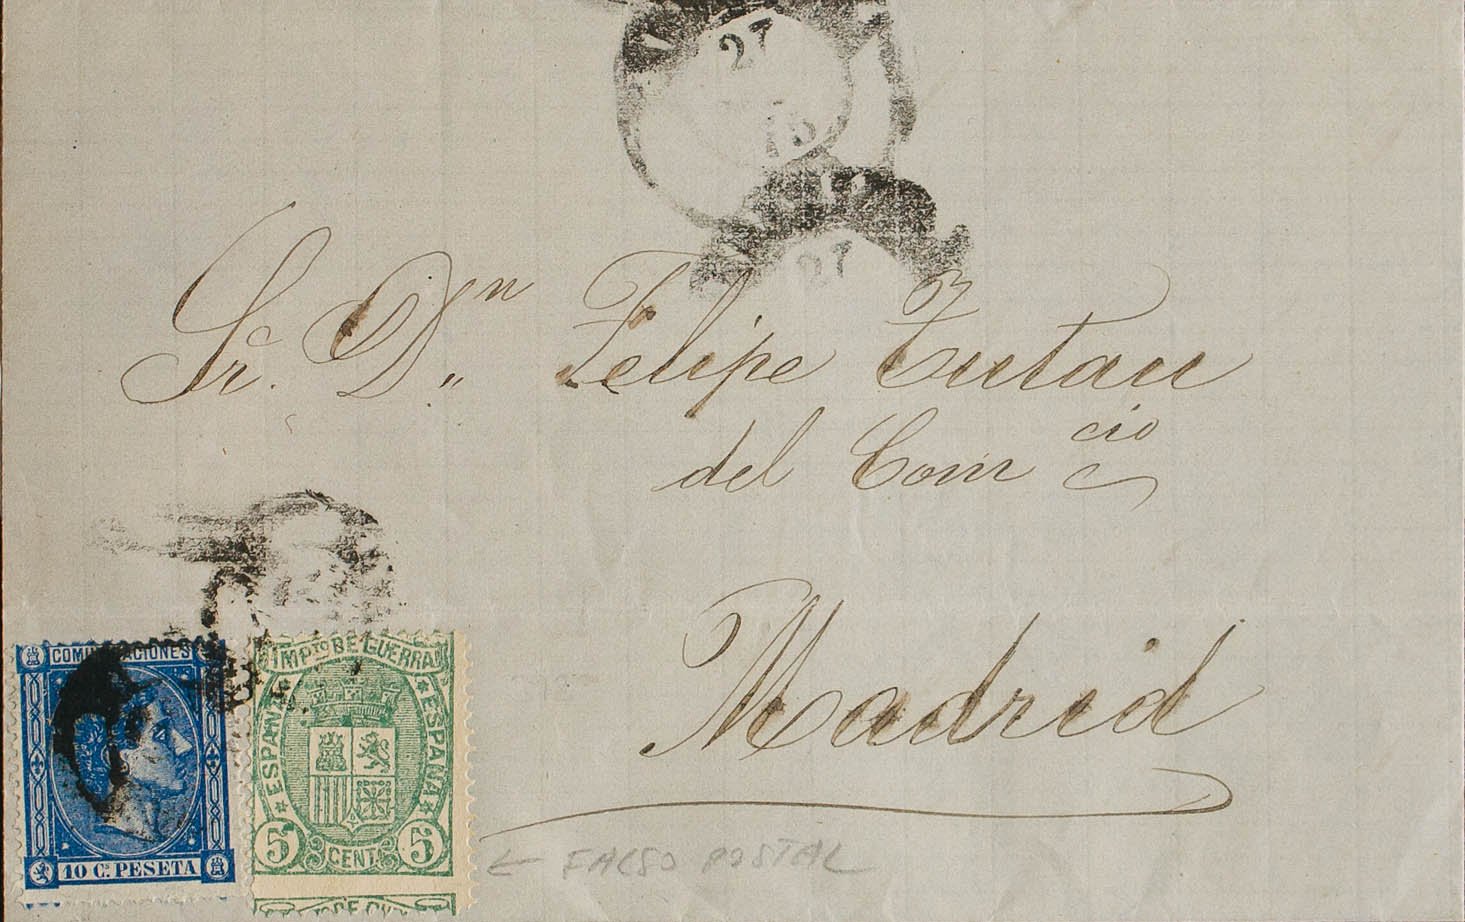 27
75
27
Sr. Dn Felipe Tutau
del Comcio
Madrid
COMUNICACIONES
10 C. PESETA
IMPTO DE GUERRA
ESPAÑA
ESPAÑA
5 CENT. 5
← FALSO POSTAL